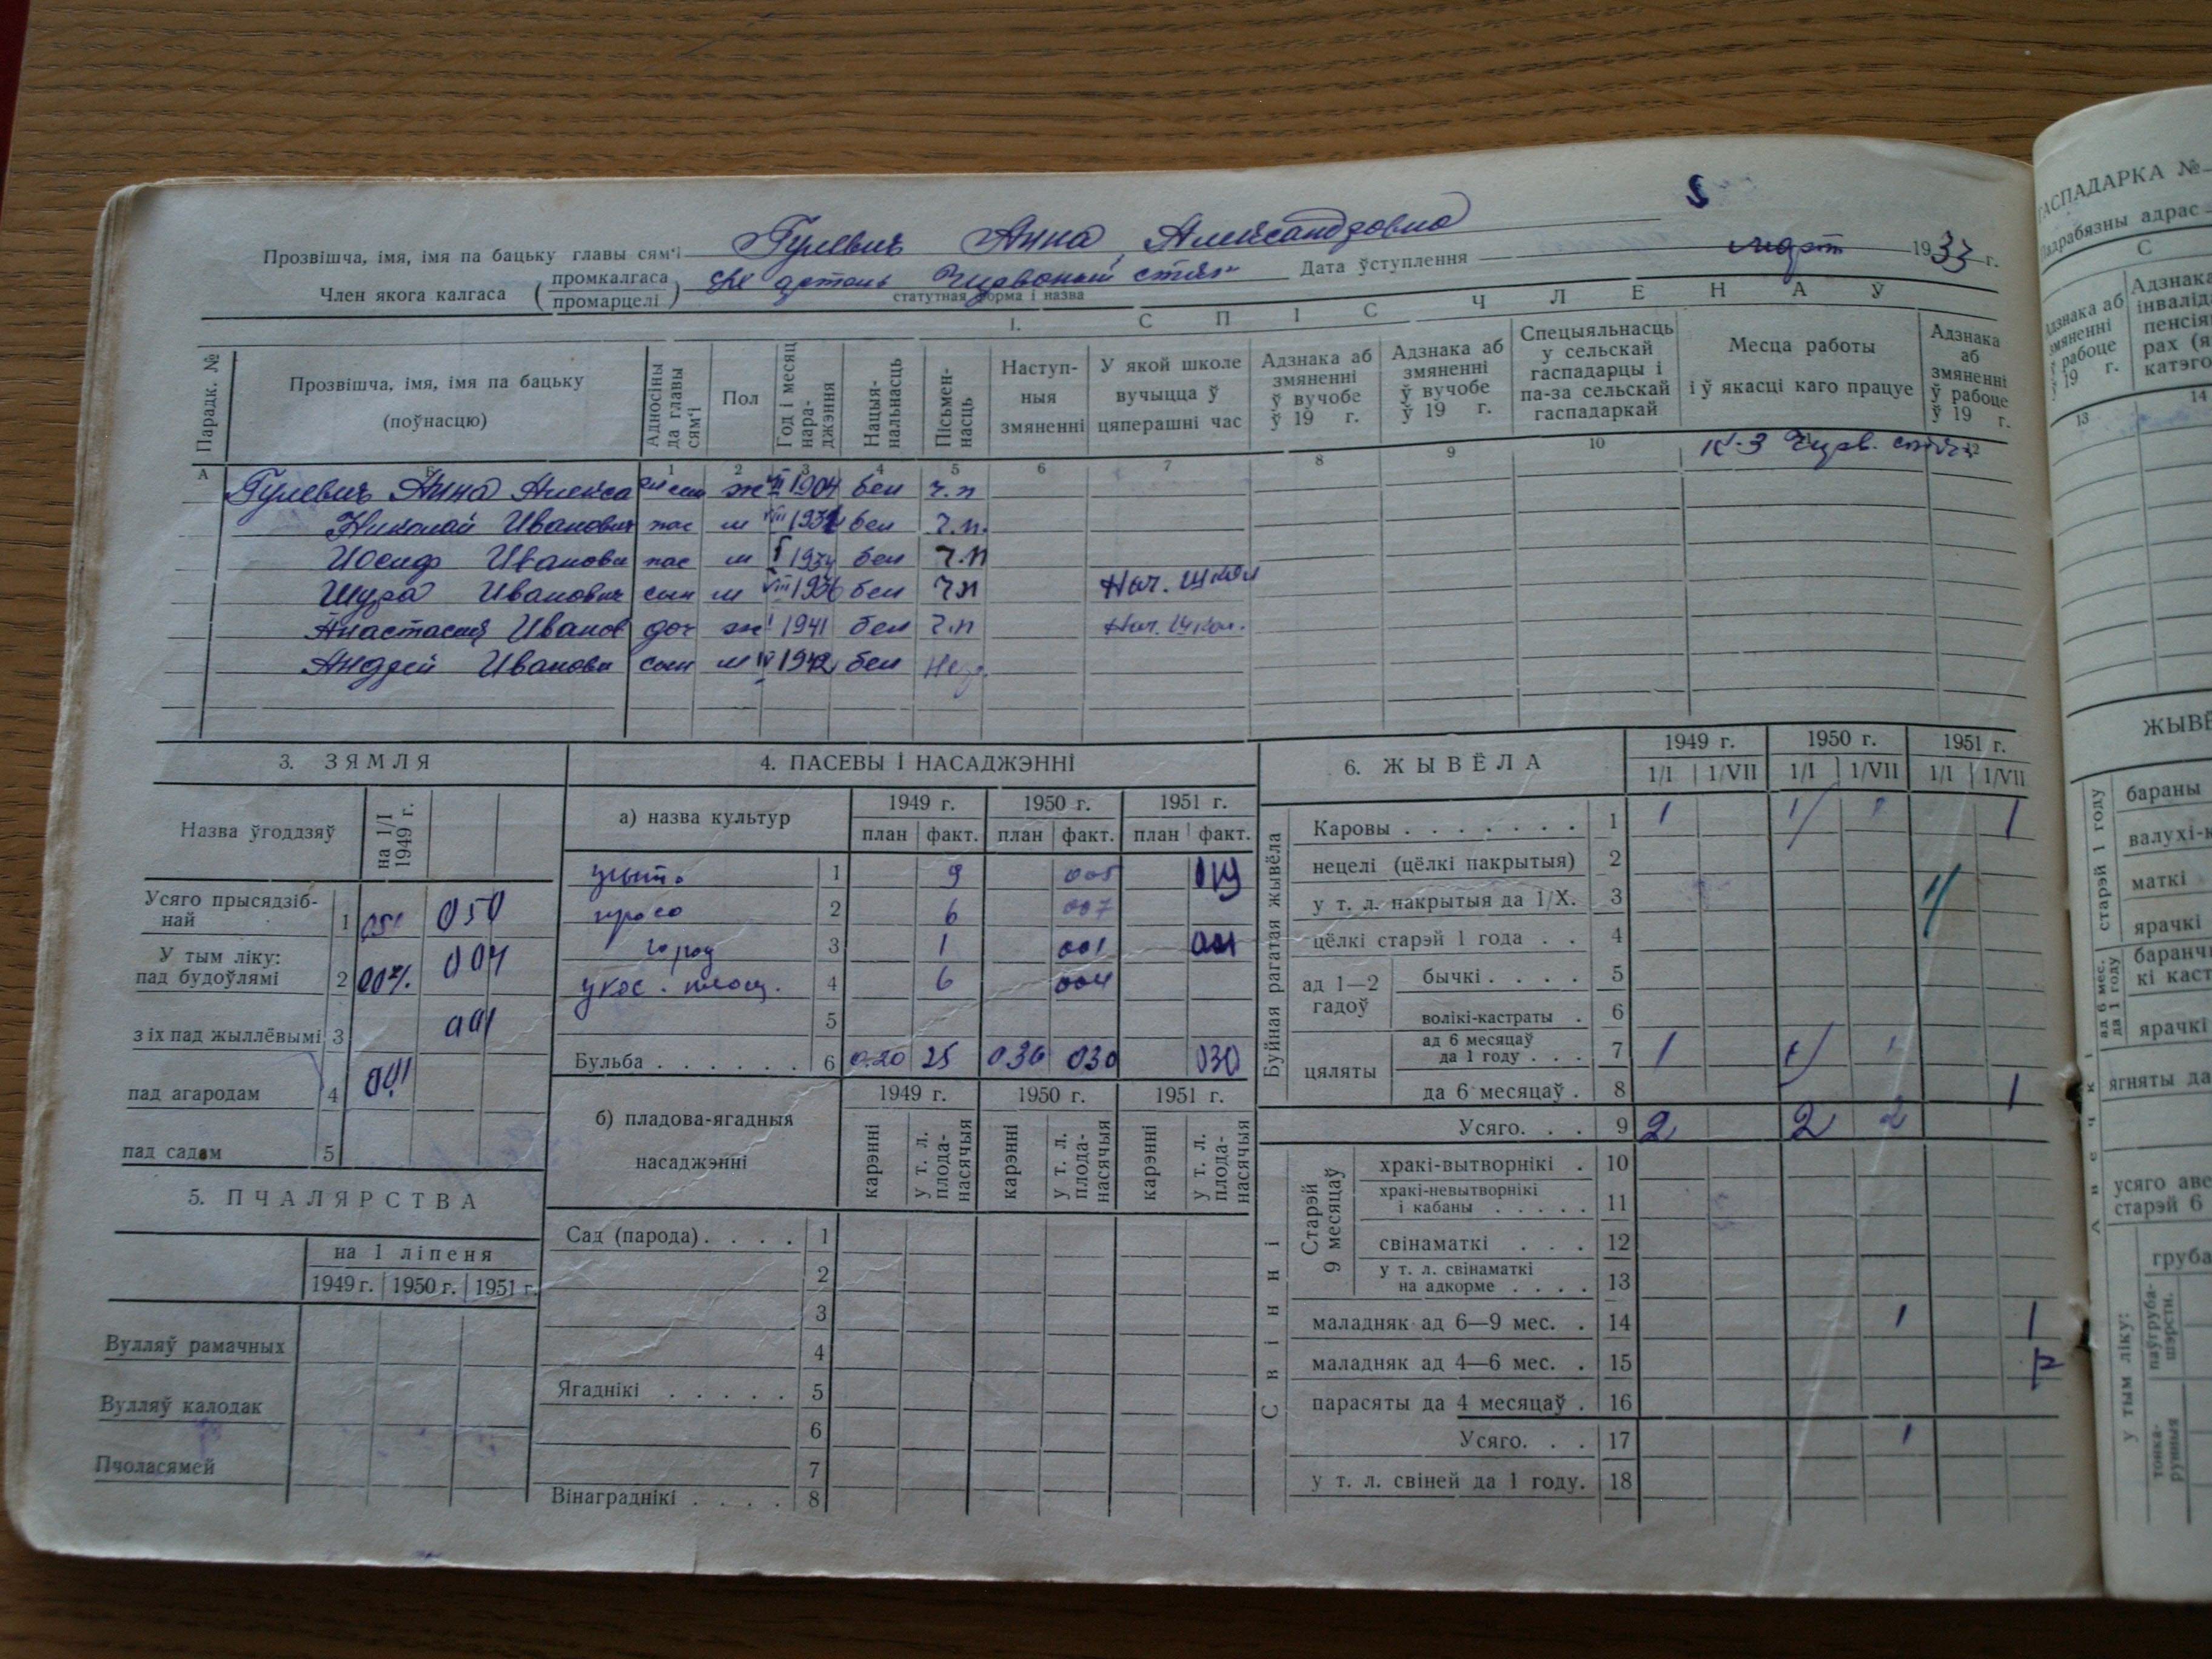 Прозвішча, імя, імя па бацьку главы сям'і Гулевич Анна Александровна
Член якога калгаса ( промкалгаса / промарцелі ) стяг Дата ўступлення март 1933 г.
статутная форма і назва
1. СПІС ЧЛЕНАЎ
Парадк. № | Прозвішча, імя, імя па бацьку (поўнасцю) | Адносіны да главы сям'і | Пол | Год і месяц нараджэння | Нацыянальнасць | Пісьменнасць | Наступныя змяненні | У якой школе вучыцца ў цяперашні час | Адзнака аб змяненні ў вучобе ў 19 г. | Адзнака аб змяненні ў вучобе ў 19 г. | Спецыяльнасць у сельскай гаспадарцы і па-за сельскай гаспадаркай | Месца работы і ў якасці каго працуе | Адзнака аб змяненні ў рабоце ў 19 г.
А Б 1 2 3 4 5 6 7 8 9 10 12
Гулевич Анна Алекса ж 1904 бел ч.п К-З Чырв. стяг
Николай Иванович м VIII бел ч.п.
Иосиф Иванови м 1934 бел ч.п
Шура Иванович сын м VIII 1936 бел ч.п Нач. школ
Анастасия Иванов доч ж 1941 бел ч.п Нач. школ.
Андрей Иванови сын м IV 1942 бел Негр.
3. ЗЯМЛЯ
Назва ўгоддзяў | на 1/I 1949 г.
Усяго прысядзібнай 1 051 050
У тым ліку: пад будоўлямі 2 004 004
з іх пад жыллёвымі 3 001
пад агародам 4 001
пад садам 5
5. ПЧАЛЯРСТВА
на 1 ліпеня
1949 г. 1950 г. 1951 г.
Вулляў рамачных
Вулляў калодак
Пчоласямей
4. ПАСЕВЫ І НАСАДЖЭННІ
а) назва культур | 1949 г. | 1950 г. | 1951 г.
план факт. план факт. план факт.
1 9 005 019
просо 2 6 007
город 3 1 001 001
укос. площ. 4 6 004
5
Бульба 6 0.20 25 0.30 030 030
б) пладова-ягадныя насаджэнні | 1949 г. | 1950 г. | 1951 г.
карэнні | у т. л. пладанасячыя | карэнні | у т. л. пладанасячыя | карэнні | у т. л. пладанасячыя
Сад (парода) 1
2
3
4
Ягаднікі 5
6
7
Вінаграднікі 8
6. ЖЫВЁЛА | 1949 г. | 1950 г. | 1951 г.
1/I 1/VII 1/I 1/VII 1/I 1/VII
Буйная рагатая жывёла
Каровы 1 1 1 1 1
нецелі (цёлкі пакрытыя) 2
у т. л. пакрытыя да 1/X. 3
цёлкі старэй 1 года 4
ад 1—2 гадоў
бычкі 5
волікі-кастраты 6
цяляты
ад 6 месяцаў да 1 году 7 1 1 1
да 6 месяцаў 8 1
Усяго 9 2 2 2
Свінні
Старэй 9 месяцаў
хракі-вытворнікі 10
хракі-невытворнікі і кабаны 11
свінаматкі 12
у т. л. свінаматкі на адкорме 13
маладняк ад 6—9 мес. 14 1 1
маладняк ад 4—6 мес. 15
парасяты да 4 месяцаў 16
Усяго 17 1
у т. л. свіней да 1 году. 18
ГАСПАДАРКА №
Падрабязны адрас
С
Адзнака аб змяненні ў рабоце ў 19 г.
13
14
ЖЫВЁ
старэй 1 году
бараны
валухі-к
маткі
ярачкі
ад 6 мес. да 1 году
баранчы
кі каст
ярачкі
Авечкі
ягняты да
усяго аве
старэй 6
у тым ліку:
груба
паўгруба-шэрсти.
тонка-рунныя